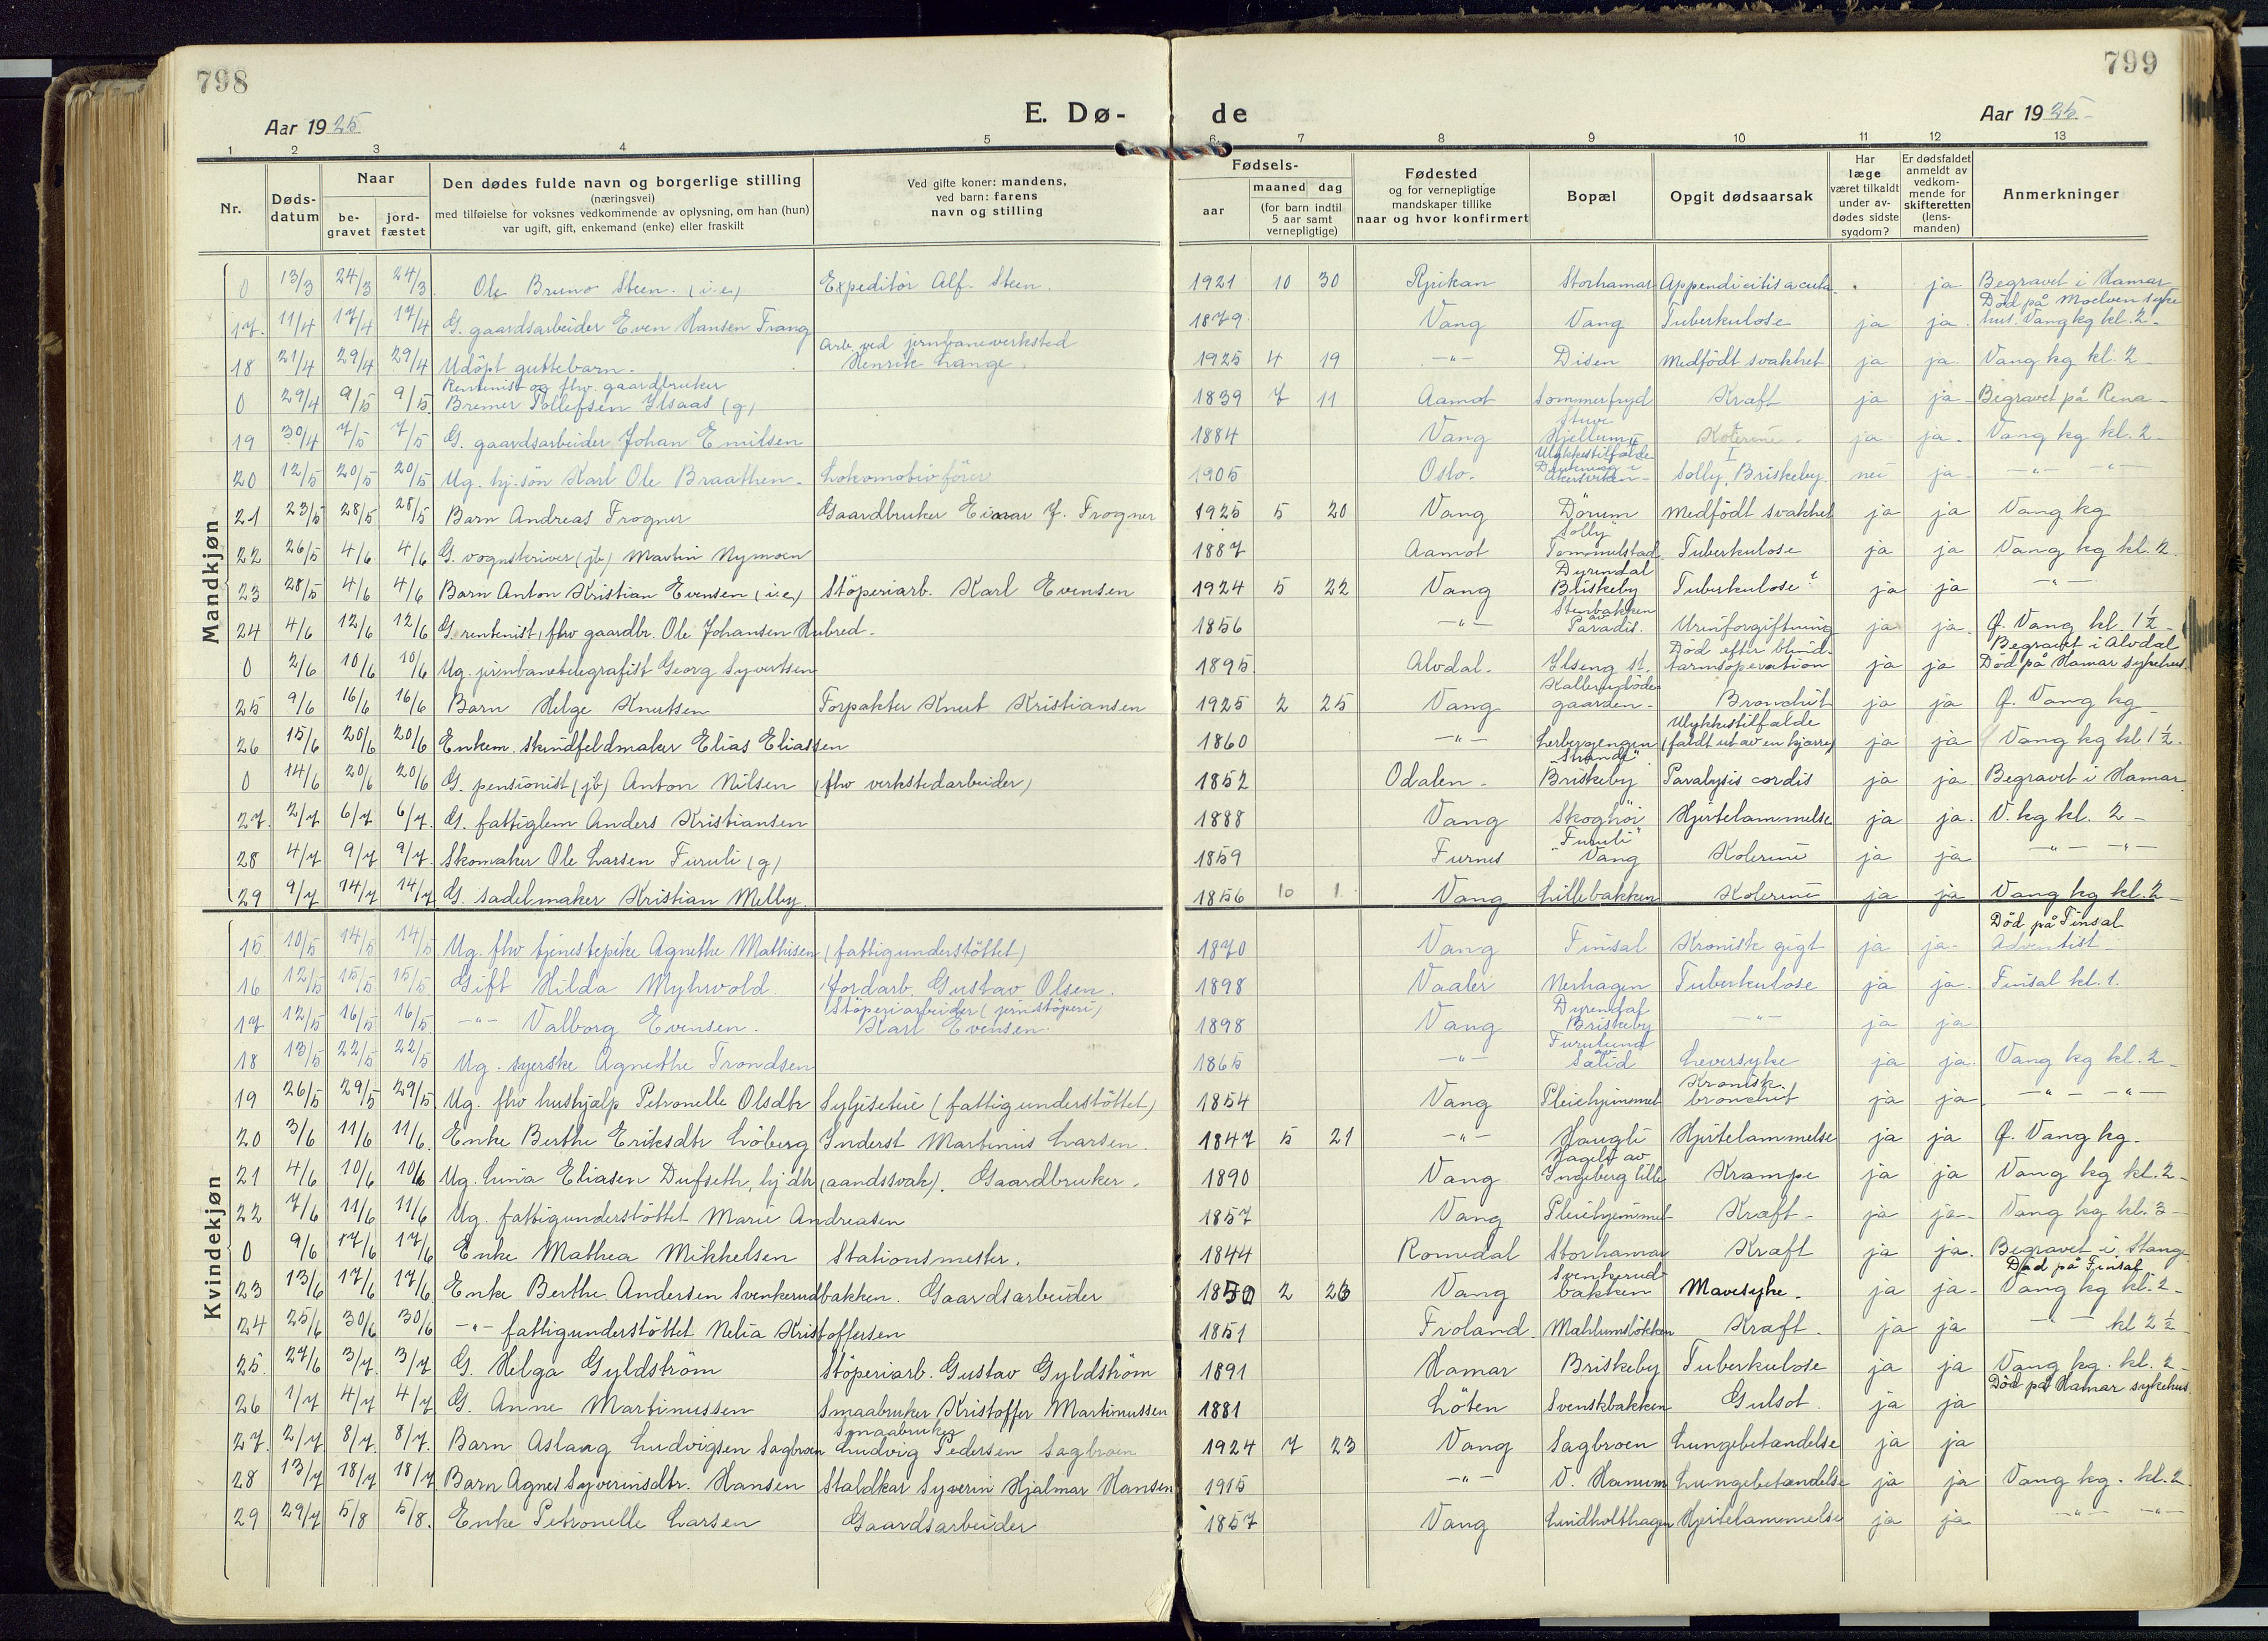 798
799
E. Dø- de
Aar 1925
Aar 1925
1 2 3 4 5 6 7 8 9 10 11 12 13
Nr.
Døds-datum
Naar
be-gravet
jord-fæstet
Den dødes fulde navn og borgerlige stilling
(næringsvei)
med tilføielse for voksnes vedkommende av oplysning, om han (hun)
var ugift, gift, enkemand (enke) eller fraskilt
Ved gifte koner: mandens,
ved barn: farens
navn og stilling
Fødsels-
aar
maaned dag
(for barn indtil
5 aar samt
vernepligtige)
Fødested
og for vernepligtige
mandskaper tillike
naar og hvor konfirmert
Bopæl
Opgit dødsaarsak
Har
læge
været tilkaldt
under av-
dødes sidste
sygdom?
Er dødsfaldet
anmeldt av
vedkom-
mende for
skifteretten
(lens-
manden)
Anmerkninger
Mandkjøn
0 13/3 24/3 24/3 Ole Bruno Steen. (i.e.) Expeditör Alf. Steen. 1921 10 30 Rjukan Storhamar Appendicitis acuta. ja. Begravet i Hamar
17. 11/4 17/4 17/4 G. gaardsarbeider Even Hansen Trang 1879 Vang Vang Tuberkulose ja ja. Död på Moelven sykehus. Vang kg kl. 2.
18 21/4 29/4 29/4 Udöpt guttebarn. Arb. ved jernbaneverksted Henrik Lange. 1925 4 19 -"- Disen Medfödt svakhet ja ja. Vang kg kl. 2
0 29/4 9/5 9/5. Rentenist og fhv. gaardbruker Bremer Tollefsen Ilsaas (g) 1839 7 11 Aamot Sommerfryd Kræft ja ja Begravet på Rena
19 30/4 7/5 7/5 G. gaardsarbeider Johan Emilsen 1884 Vang Hjellum Kolerine. ja ja. Vang kg kl. 2
20 12/5 20/5 20/5 Ug. hj. sön Karl Ole Braathen. Lokomotivförer 1905 Oslo. Ulykkestilfælde Drukning i Akersviken Solly, Briskeby. nei ja -"- -"-
21 23/5 28/5 28/5 Barn Andreas Frogner Gaardbruker Einar J. Frogner 1925 5 20 Vang Dörum Medfödt svakhet ja ja Vang kg
22 26/5 4/6 4/6 G. vognskriver (jb) Martin Nymoen 1887 Aamot Solly Tommelstad Tuberkulose ja ja Vang kg kl. 2.
23 28/5 4/6 4/6 Barn Anton Kristian Evensen (i.e.) Stöperiarb. Karl Evensen 1924 5 22 Vang Dyrendal Briskeby Tuberkulose? ja ja -"-
24 4/6 12/6 12/6 G. rentenist, fhv gaardbr. Ole Johansen Hubred. 1856 -"- Stenbakken av Paradis. Urinforgiftning ja ja. Ö. Vang kl. 1½
0 2/6 10/6 10/6 Ug. jernbanetelegrafist Georg Syvertsen 1895. Alvdal. Ilseng st. Död efter blindtarmsoperation ja ja Begravet i Alvdal Död på Hamar sykehus.
25 9/6 16/6 16/6 Barn Helge Knutsen Forpakter Knut Kristiansen 1925 2 25 Vang gaarden. Bronchit ja ja Ö. Vang kg
26 15/6 20/6 20/6 Enkem. skindfeldmaker Elias Eliassen 1860 -"- Lerbergengen Ulykkestilfælde (faldt ut av en kjærre) ja ja Vang kg kl 1½.
0 14/6 20/6 20/6 G. pensionist (jb) Anton Nilsen (fhv verkstedarbeider) 1852 Odalen. "Strandt" Briskeby Paralysis cordis ja ja. Begravet i Hamar
27. 2/7 6/7 6/7. G. fattiglem Anders Kristiansen 1888 Vang Skoghöi Hjertelammelse ja ja. V. kg kl. 2
28 4/7 9/7 9/7. Skomaker Ole Larsen Furuli (g) 1859 Furnes "Furuli" Vang Kolerine ja ja -"- -"-
29 9/7 14/7 14/7 G. sadelmaker Kristian Melby. 1856 10 1 Vang Lillebakken Kolerine ja ja Vang kg kl. 2
Kvindekjøn
15. 10/5 14/5 14/5 Ug. fhv tjenestepike Agnethe Mathisen (fattigunderstöttet) 1870 Vang Finsal Kronisk gigt ja ja. Död på Finsal Adventist
16 12/5 15/5 15/5 Gift Hilda Myhrvold Jordarb. Gustav Olsen. 1898 Vaaler Nerhagen Tuberkulose ja ja. Finsal kl. 1.
17 12/5 16/5 16/5 -"- Valborg Evensen. Stöperiarbeider (jernstöperi) Karl Evensen. 1898 Vang Dyrendal Briskeby -"- ja ja
18 13/5 22/5 22/5 Ug. syerske Agnethe Trondsen 1865 -"- Furulund Sälid Leversyke ja ja. Vang kg kl. 2
19 26/5 29/5 29/5. Ug. fhv hushjælp Petronelle Olsdtr Syljiseteie (fattigunderstöttet) 1854 Vang Pleiehjemmet Kronisk bronchit ja ja -"- -"-
20 3/6 11/6 11/6. Enke Berthe Eriksdtr Löberg Inderst Martinus Larsen. 1847 5 21 -"- Haugli Hjertelammelse ja ja Ö. Vang kg.
21 4/6 10/6 10/6 Ug. Lina Eliasen Dufseth, hj.dtr (aandssvak). Gaardbruker. 1890 Vang av Ingeberg lille Krampe ja ja Vang kg kl. 2
22 7/6 11/6 11/6 Ug. fattigunderstöttet Marie Andreasen 1857 Vang Pleiehjemmet Kræft ja ja Vang kg kl. 3
0 9/6 17/6 17/6 Enke Mathea Mikkelsen Stationsmester. 1844 Romedal Storhamar Kræft ja ja. Begravet i Stange
23 13/6 17/6 17/6 Enke Berthe Andersen Svenkerudbakken. Gaardsarbeider 1850 2 26 Vang Svenkerudbakken Mavesyke. ja ja Död på Finsal Vang kg kl. 2
24 25/6 30/6 30/6 -"- fattigunderstöttet Nelia Kristoffersen 1851 Froland. Mahlumslökken Kræft. ja ja -"- kl 2½
25. 27/6 3/7. 3/7 G. Helga Gyldström Stöperiarb. Gustav Gyldström 1891 Hamar Briskeby Tuberkulose ja ja Vang kg. kl. 2
26 1/7 4/7 4/7 G. Anne Martinussen Smaabruker Kristoffer Martinussen 1881 Löten Svenskbakken Gulsot. ja ja Död på Hamar sykehus.
27. 2/7 8/7. 8/7. Barn Aslaug Ludvigsen Sagbroen Smaabruker Ludvig Pedersen Sagbroen 1924 7 23 Vang Sagbroen Lungebetændelse ja ja
28 13/7 18/7 18/7 Barn Agnes Syverinsdtr. Hansen Staldkar Syverin Hjalmar Hansen 1915 -"- V. Hanum Lungebetændelse ja ja Vang kg. kl. 2.
29 29/7 5/8 5/8. Enke Petronelle Larsen Gaardsarbeider 1857 Vang Lindholthagen Hjertelammelse ja ja -"- -"-